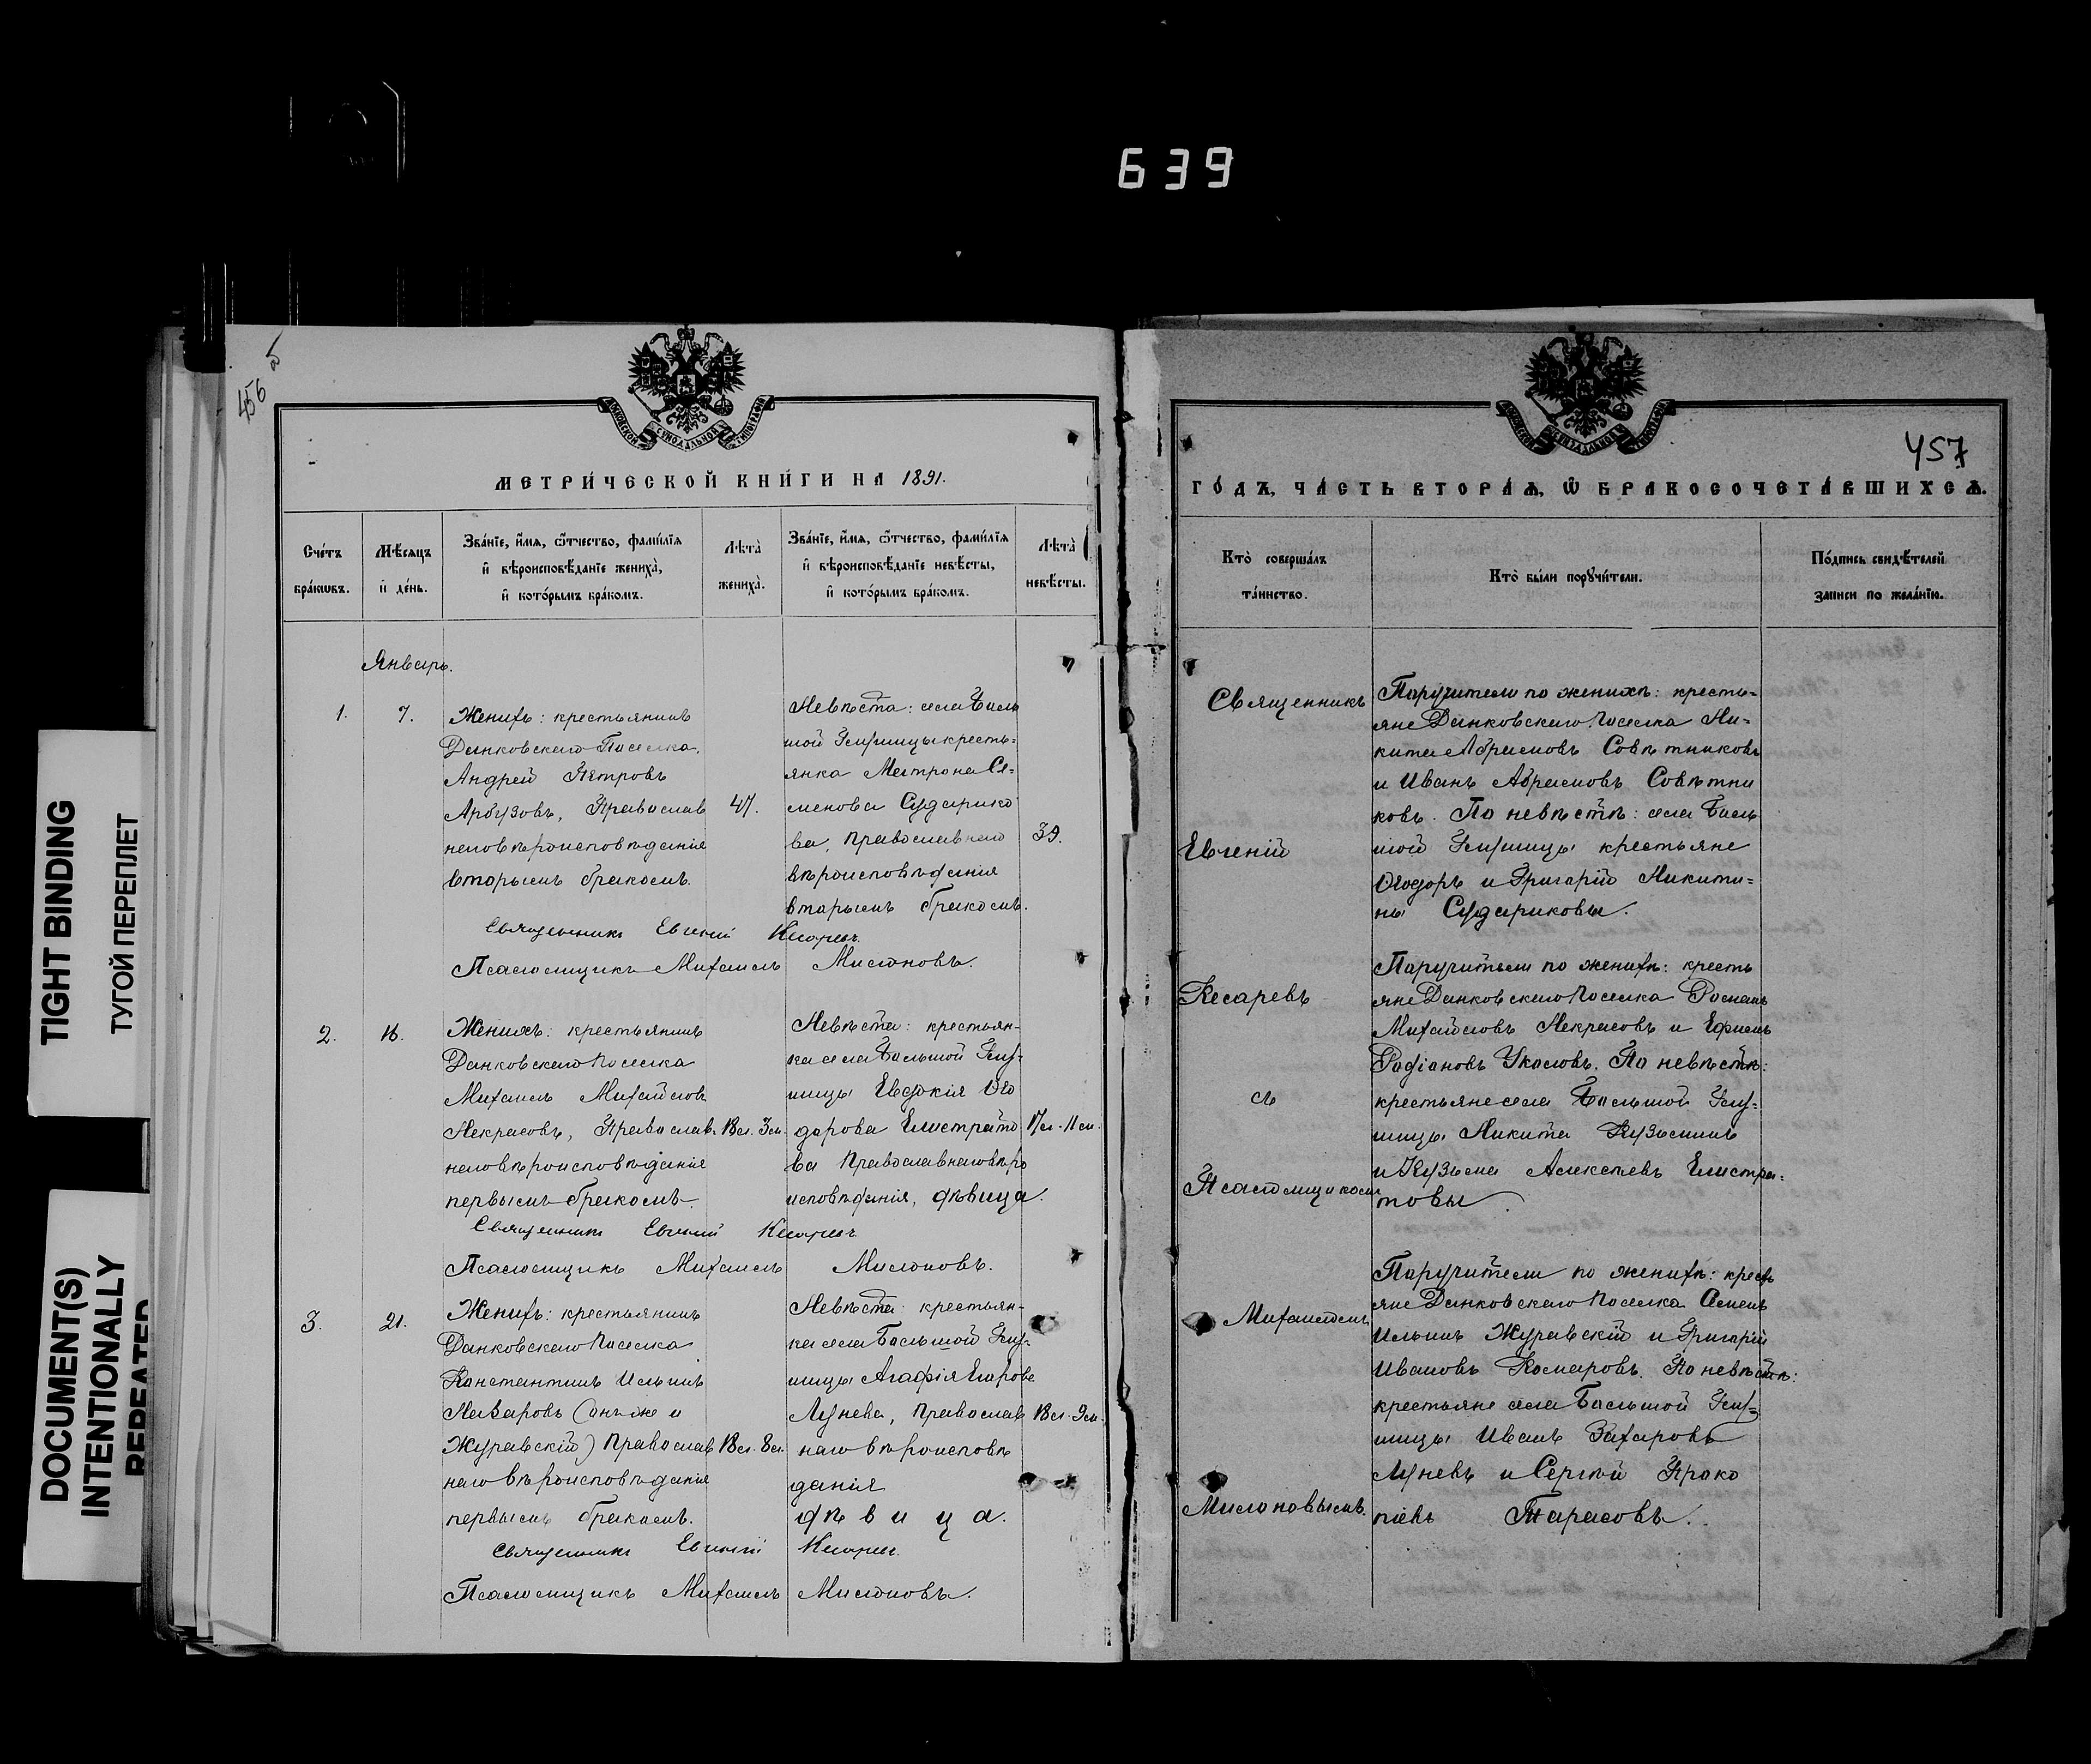 639
TIGHT BINDING
ТУГОЙ ПЕРЕПЛЕТ
DOCUMENT(S)
INTENTIONALLY
REPEATED
456
МОСКОВСКОЙ СѴНОДАЛЬНОЙ ТИПОГРАФІИ
МЕТРИ́ЧЕСКОЙ КНИ́ГИ НА 1891.
Сче́тъ бра́кѡвъ.
Мѣ́сяцъ и҆ де́нь.
Зва́нїе, и҆́мя, ѻ҆́тчество, фами́лїя и҆ вѣроисповѣ́данїе жениха̀, и҆ кото́рымъ бра́комъ.
Лѣта̀ жениха̀.
Зва́нїе, и҆́мя, ѻ҆́тчество, фами́лїя и҆ вѣроисповѣ́данїе невѣ́сты, и҆ кото́рымъ бра́комъ.
Лѣта̀ невѣ́сты.
Январь.
1.
7.
Женихъ: крестьянинъ
Данковскаго Поселка,
Андрей Петровъ
Арбузовъ, Православ
наго вѣроисповѣданія
вторымъ бракомъ.
47.
Невѣста: села Боль
шой крестьянка Матрона Се-
менова Сударико
ва, православнаго
вѣроисповѣданія
вторымъ бракомъ.
39.
Священникъ Евгеній Кесаревъ.
Псаломщикъ Михаилъ Милоновъ.
2.
16.
Женихъ: крестьянинъ
Данковскаго Поселка
Михаилъ Михайловъ
Некрасовъ, Православ-
наго вѣроисповѣданія
первымъ бракомъ.
18 л. 3 м.
Невѣста: крестьян-
ка села Большой
Евдокія Ѳео
дорова Елистрато
ва Православнаго вѣро
исповѣданія, дѣвица.
17 л. 11 м.
Священникъ Евгеній Кесаревъ
Псаломщикъ Михаилъ Милоновъ.
3.
21.
Женихъ: крестьянинъ
Данковскаго Поселка
Константинъ Ильинъ
Назаровъ (онъ же и
Журавскій) Православ
наго вѣроисповѣданія
первымъ бракомъ.
18 л. 8 м.
Невѣста: крестьян-
ка села Большой
Агафія Егорова
Лунева, Православ
наго вѣроисповѣ
данія
дѣвица.
18 л. 9 м.
Священникъ Евгеній Кесаревъ.
Псаломщикъ Михаилъ Милоновъ.
МОСКОВСКОЙ СѴНОДАЛЬНОЙ ТИПОГРАФІИ
457
ГО́ДЪ, ЧА́СТЬ ВТОРА́Ѧ, Ѽ БРАКОСОЧЕТА́ВШИХСѦ.
Кто̀ соверша́лъ та́инство.
Кто̀ бы́ли порꙋчи́тели.
По́дпись свидѣ́телей за́писи по жела́нїю.
Священникъ
Евгеній
Кесаревъ
съ
Псаломщикомъ
Михаиломъ
Милоновымъ.
Паручители по женихѣ: кресть-
яне Данковскаго Поселка Ни-
кита Абрамовъ Совѣтниковъ
и Иванъ Абрамовъ Совѣтни
ковъ. По невѣстѣ: села Боль
шой крестьяне
Ѳеодоръ и Григорій Никити-
ны Судариковы.
Паручители по женихѣ: кресть
яне Данковскаго Поселка Романъ
Михайловъ Некрасовъ и Ефимъ
Радіановъ Укаловъ. По невѣстѣ:
крестьяне села Большой
Никита Кузьминъ
и Кузьма Алексѣевъ Елистра-
товы.
Паручители по женихѣ: кресть
яне Данковскаго Поселка Семенъ
Ильинъ Журавскій и Григорій
Ивановъ Комаровъ. По невѣстѣ:
крестьяне села Большой
Иванъ Захаровъ
Луневъ и Сергѣй Проко
піевъ Тарасовъ.